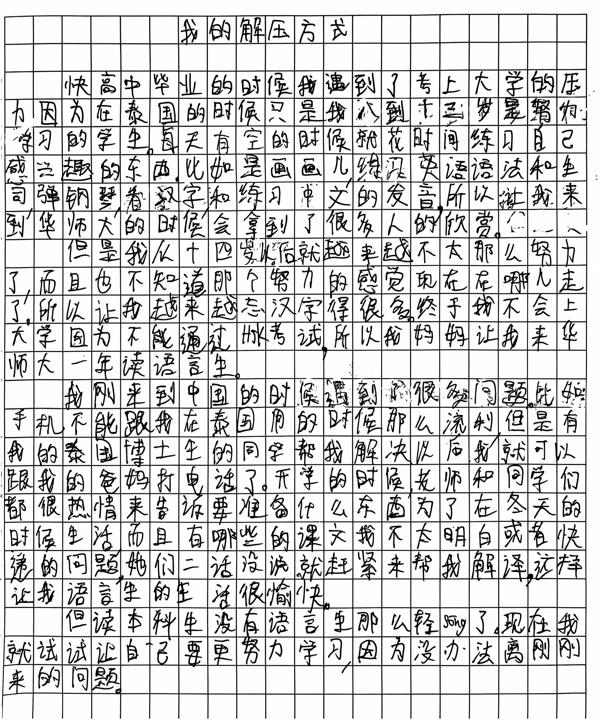 我的解压方式
快高中毕业的时候我遇到了考上大学的压
力因为在泰国的时候只是我从到十三岁是努力
学习的学生。每天有空的时候就花时间练习自己
感兴趣的东西.比如是画画儿,练习英语语法和生
司,弹钢琴,看汉字和练习中文的发音,所以让我来
到华师大的时候会拿到了很多人的欣赏。
但是我从十四岁以后就越来越不太那么努力
了,而且也不知道那个努力的感觉现在在哪儿走
了.所以让我越来越忘汉字得很多.终于我不会上
大学因为不能通过HSK考试,所以我妈妈让我来华
师大一年读语言生。
我刚来到中国的时候遇到了很多问题.比如
手机不能跟我在泰国用的时候那么流利,但是有
我的泰国博士生的同学帮我解决以后我就可以
跟我的爸妈打电话了.开学的时候,老师和同学们
都很热情来告诉要准备什么东西为了在冬天的
时候生活而且有哪些的课文我不太明白或者快
递的问题,她们二话没说就赶紧来帮我解译,这样
让我语言生的生活很愉快。
但读本科生没有语言生那么轻song了.现在我
就试试让自己要更努力学习,因为没办法离刚刚
来的问题。